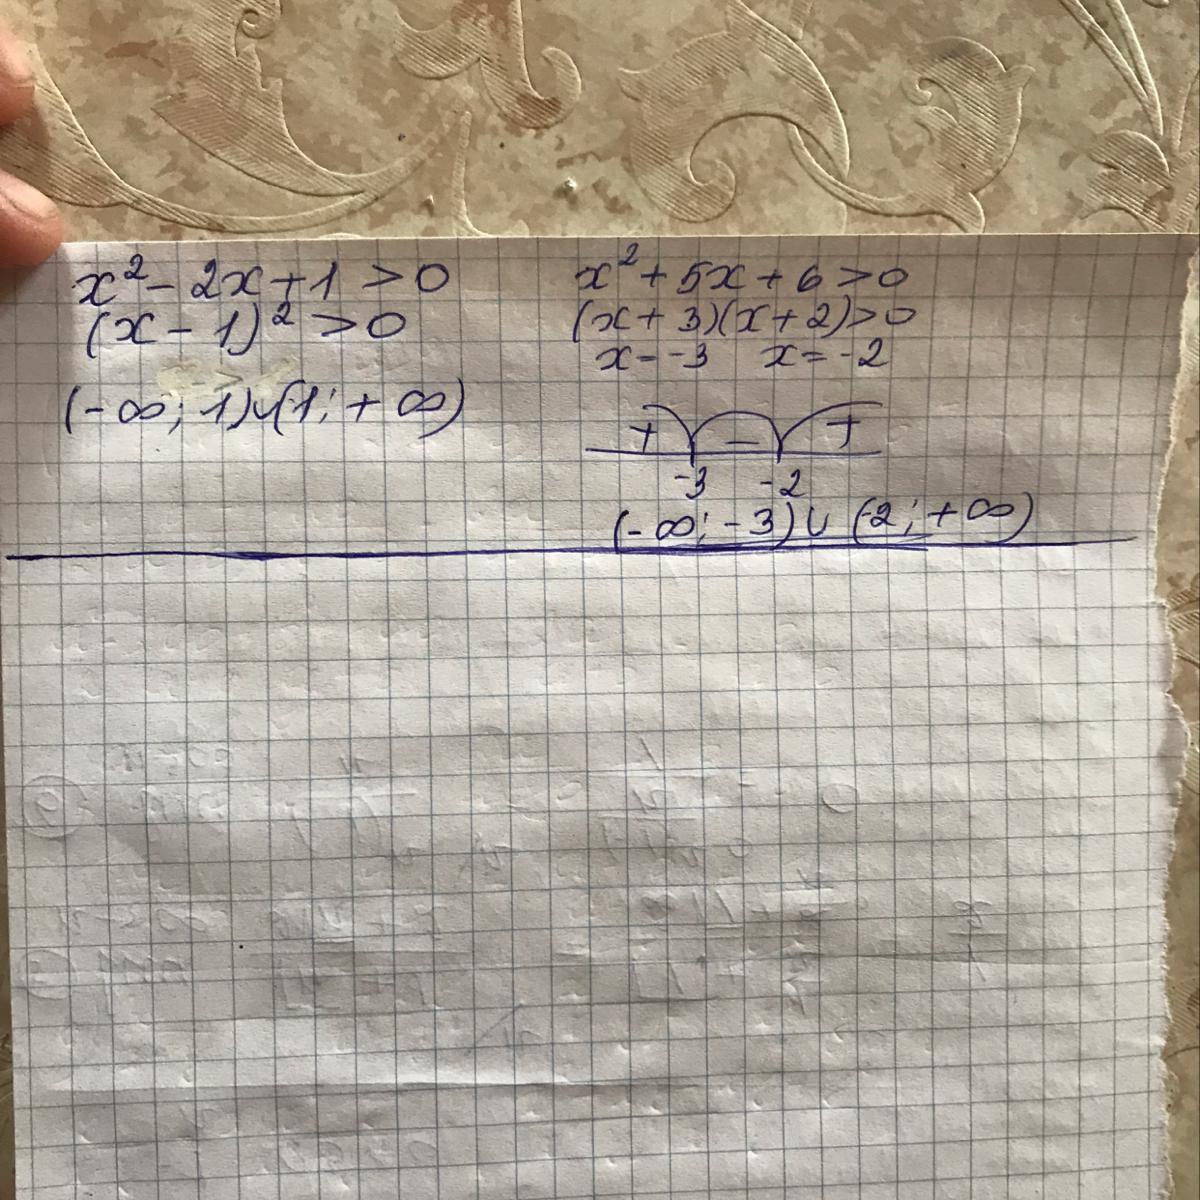 x² - 2x + 1 > 0
(x - 1)² > 0
(-∞; 1)∪(1; + ∞)
x² + 5x + 6 > 0
(x + 3)(x + 2) > 0
x = -3 x = -2
+ - +
-3 -2
(-∞; -3) ∪ (-2; +∞)